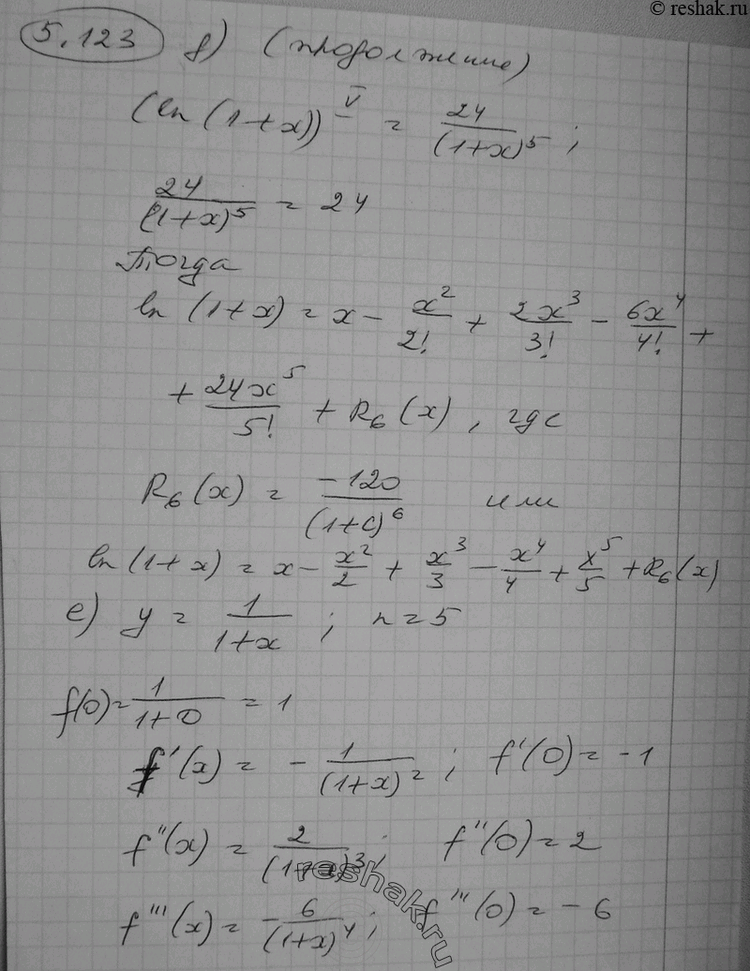 © reshak.ru
5.123 д) (продолжение)
(ln (1+x))^V = 24/(1+x)^5 ;
24/(1+x)^5 = 24
Тогда
ln (1+x) = x - x^2/2! + 2x^3/3! - 6x^4/4! +
+ 24x^5/5! + R_6 (x), где
R_6 (x) = -120/(1+c)^6 или
ln (1+x) = x - x^2/2 + x^3/3 - x^4/4 + x^5/5 + R_6 (x)
е) y = 1/(1+x) ; n = 5
f(0) = 1/(1+0) = 1
f'(x) = - 1/(1+x)^2 ; f'(0) = -1
f''(x) = 2/(1+x)^3 ; f''(0) = 2
f'''(x) = - 6/(1+x)^4 ; f'''(0) = -6
reshak.ru